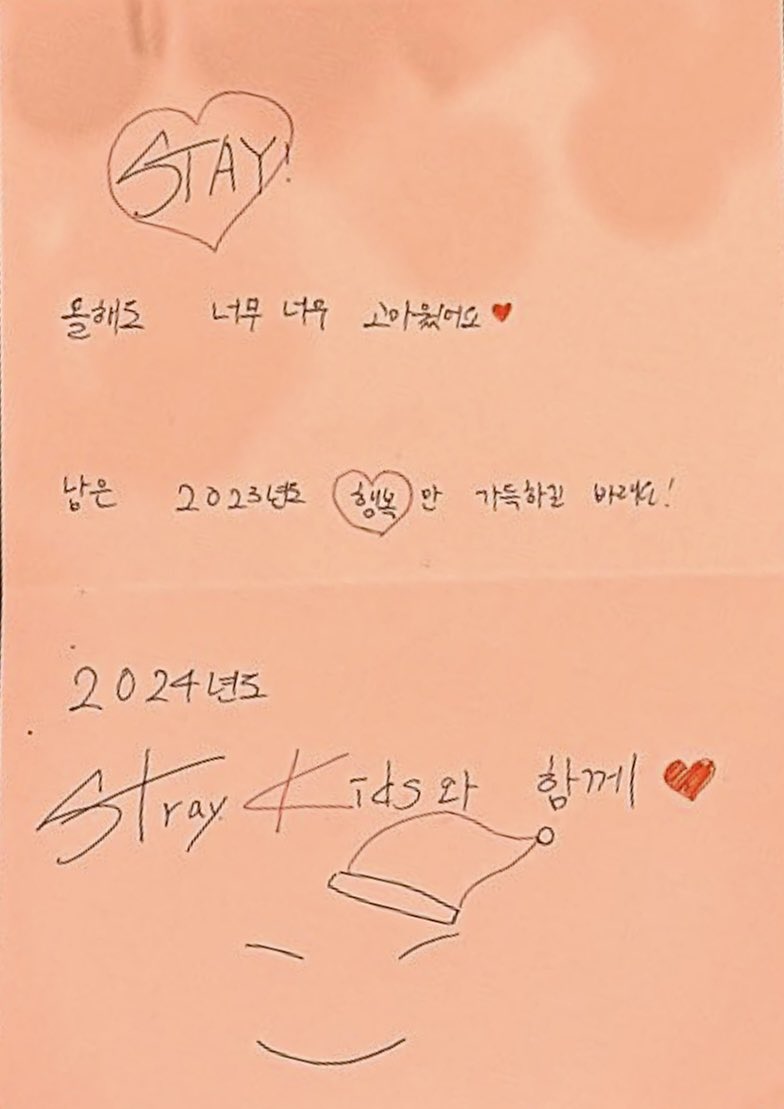 STAY!
올해도 너무 너무 고마웠어요♥
남은 2023년도 행복만 가득하길 바래요!
2024년도
Stray Kids와 함께♥